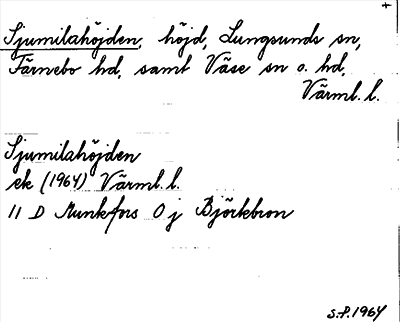 +
Sjumilahöjden, höjd, Lungsunds sn,
Färnebo hd, samt Väse sn o. hd,
Värml. l.
Sjumilahöjden
ek (1964) Värml. l.
11 D Munkfors O j Björkebron
S.P. 1964